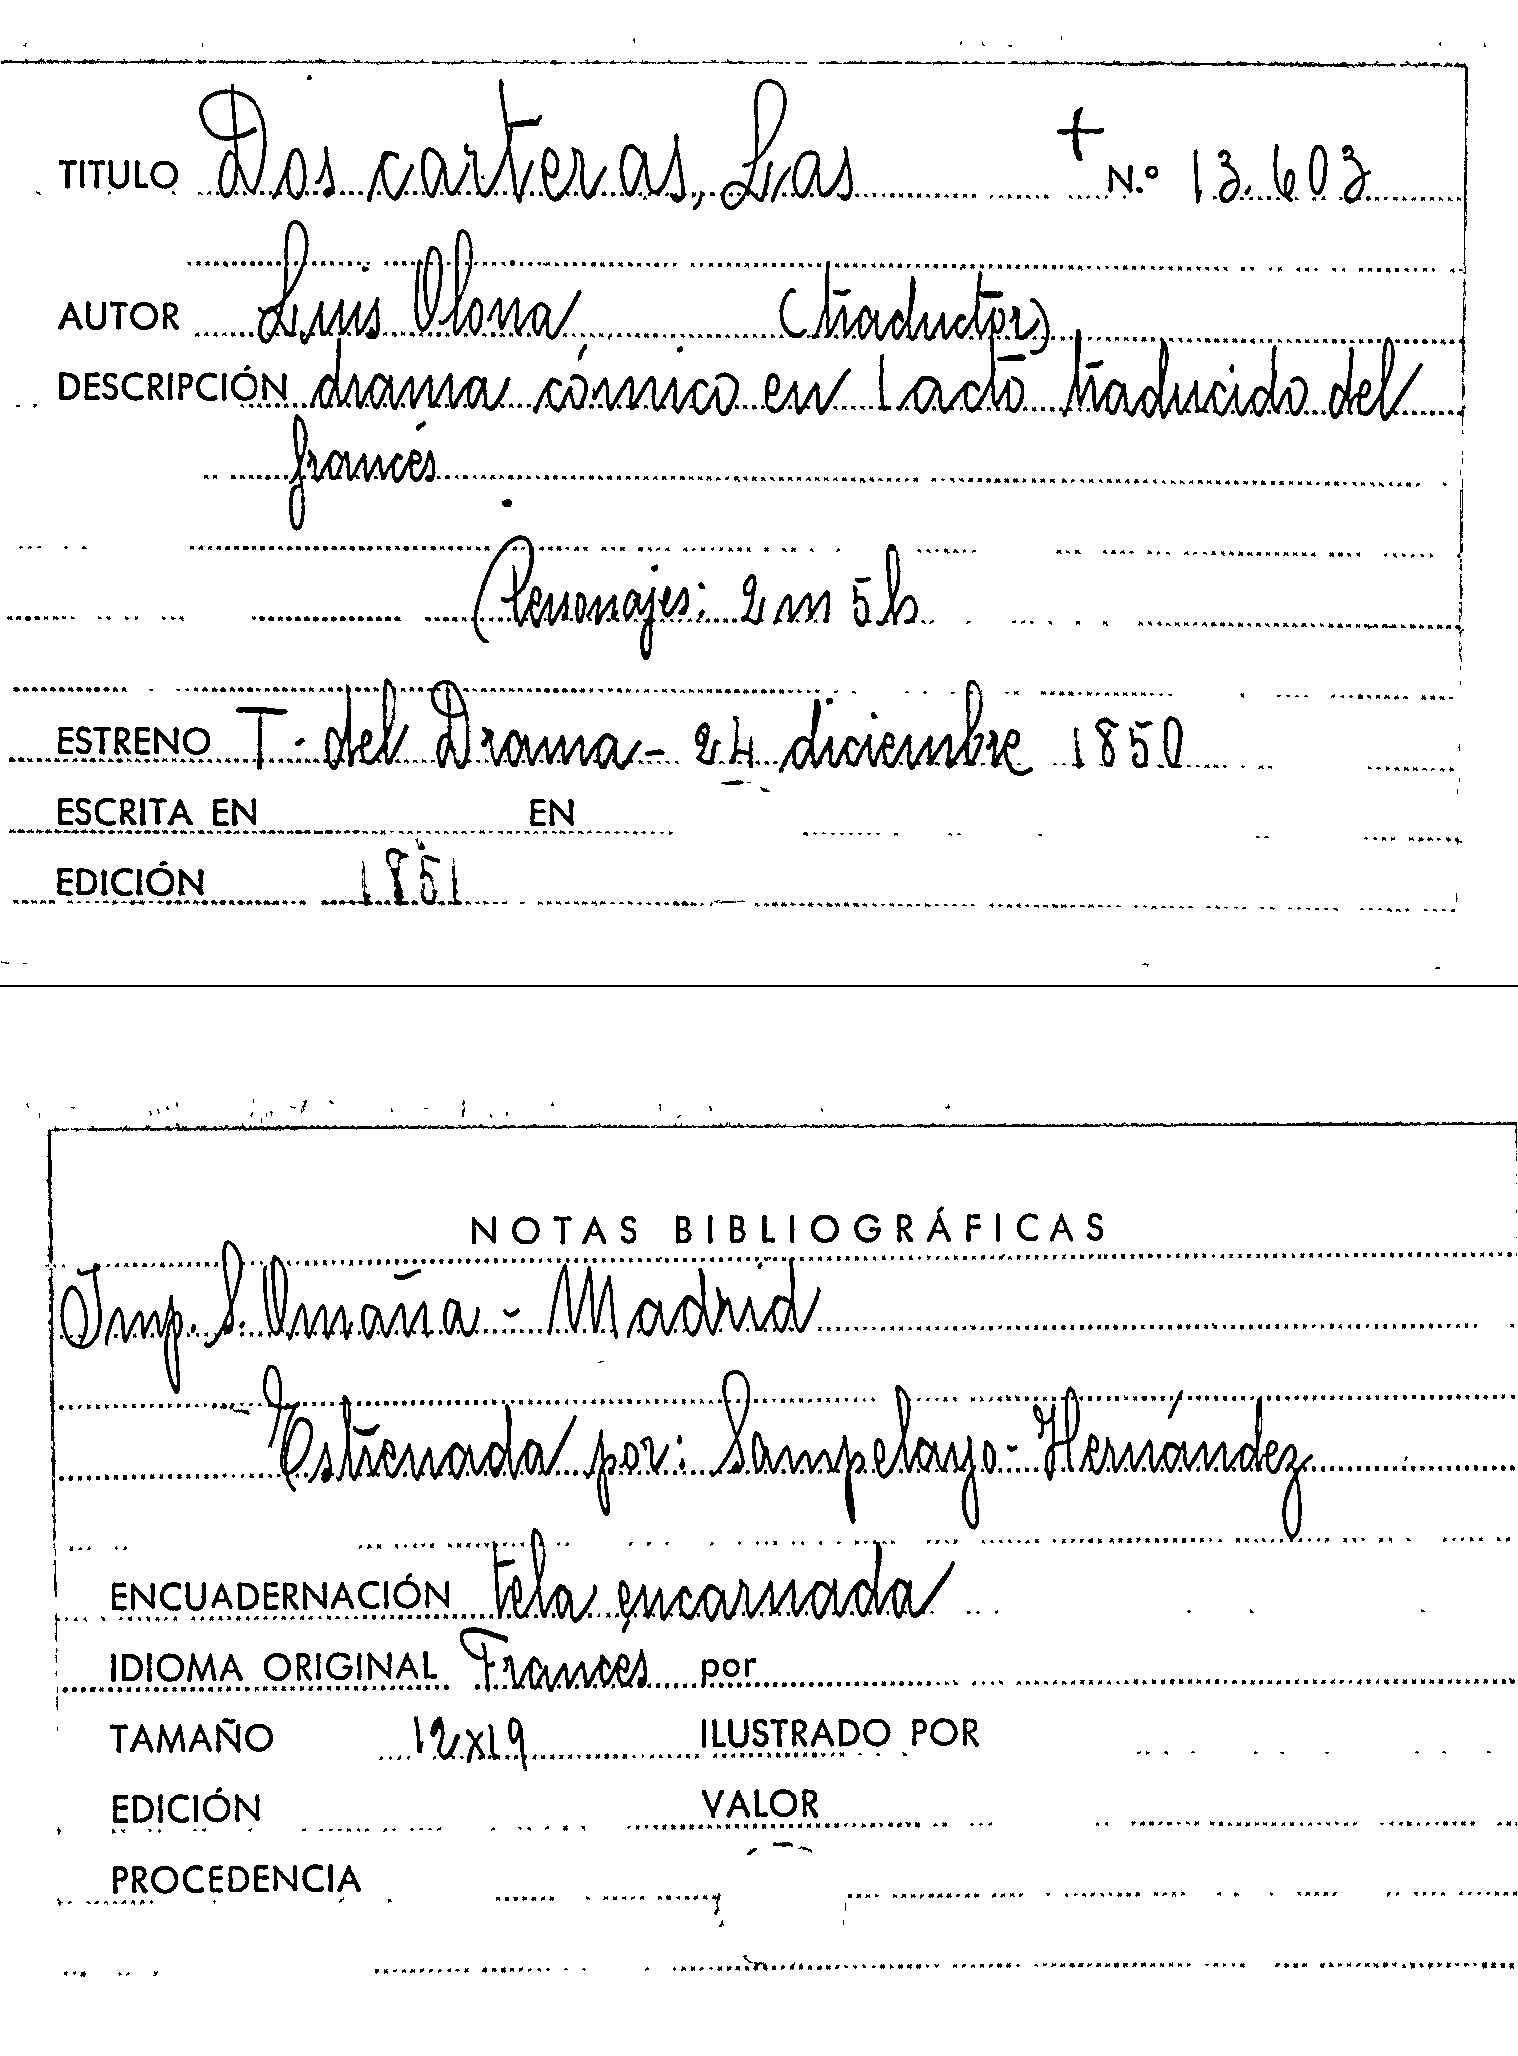 TITULO Dos carteras, Las + N.º 13.603
AUTOR Luis Olona (traductor)
DESCRIPCIÓN drama cómico en 1 acto traducido del
francés
(Personajes: 2 m 5 h
ESTRENO T. del Drama - 24 diciembre 1850
ESCRITA EN EN
EDICIÓN 1851
NOTAS BIBLIOGRÁFICAS
Imp. S. Omaña - Madrid
Estrenada por: Sampelayo - Hernández
ENCUADERNACIÓN tela encarnada
IDIOMA ORIGINAL Francés por
TAMAÑO 12x19 ILUSTRADO POR
EDICIÓN VALOR
PROCEDENCIA